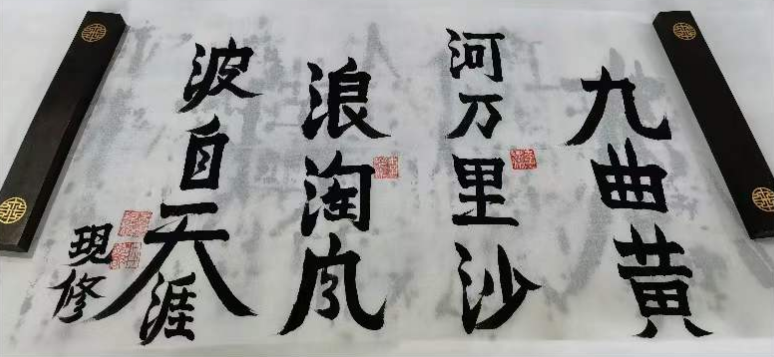 九曲黄
河万里沙
浪淘风
波自天涯
现修